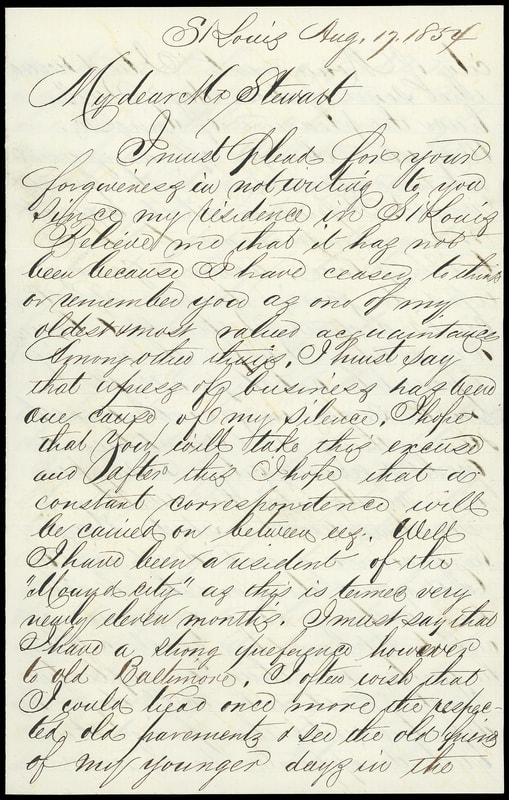 St Louis Aug. 17, 1854
My dear Mr Stewart
I must plead for your
forgiveness in not writing to you
since my residence in St Louis
Believe me that it has not
been because I have ceased to think
or remember you as one of my
oldest & most valued acquaintances
Among other things, I must say
that press of business has been
one cause of my silence. I hope
that you will take this excuse
and after this I hope that a
constant correspondence will
be carried on between us. Well
I have been a resident of the
"Mound city" as this is termed very
nearly eleven months. I must say that
I have a strong preference however
to old Baltimore. I often wish that
I could tread once more the respec-
ted old pavements & see the old friends
of my younger days in the